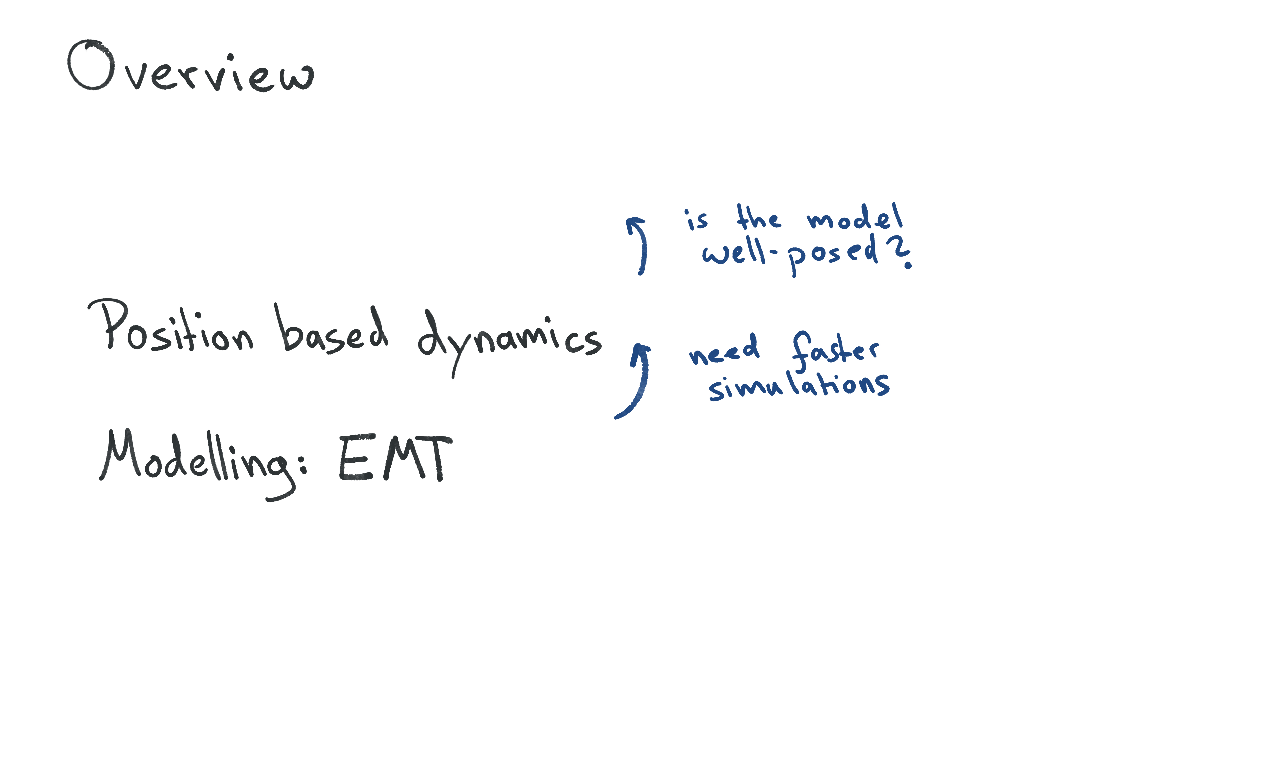 Overview
is the model
well-posed?
Position based dynamics
need faster
simulations
Modelling: EMT